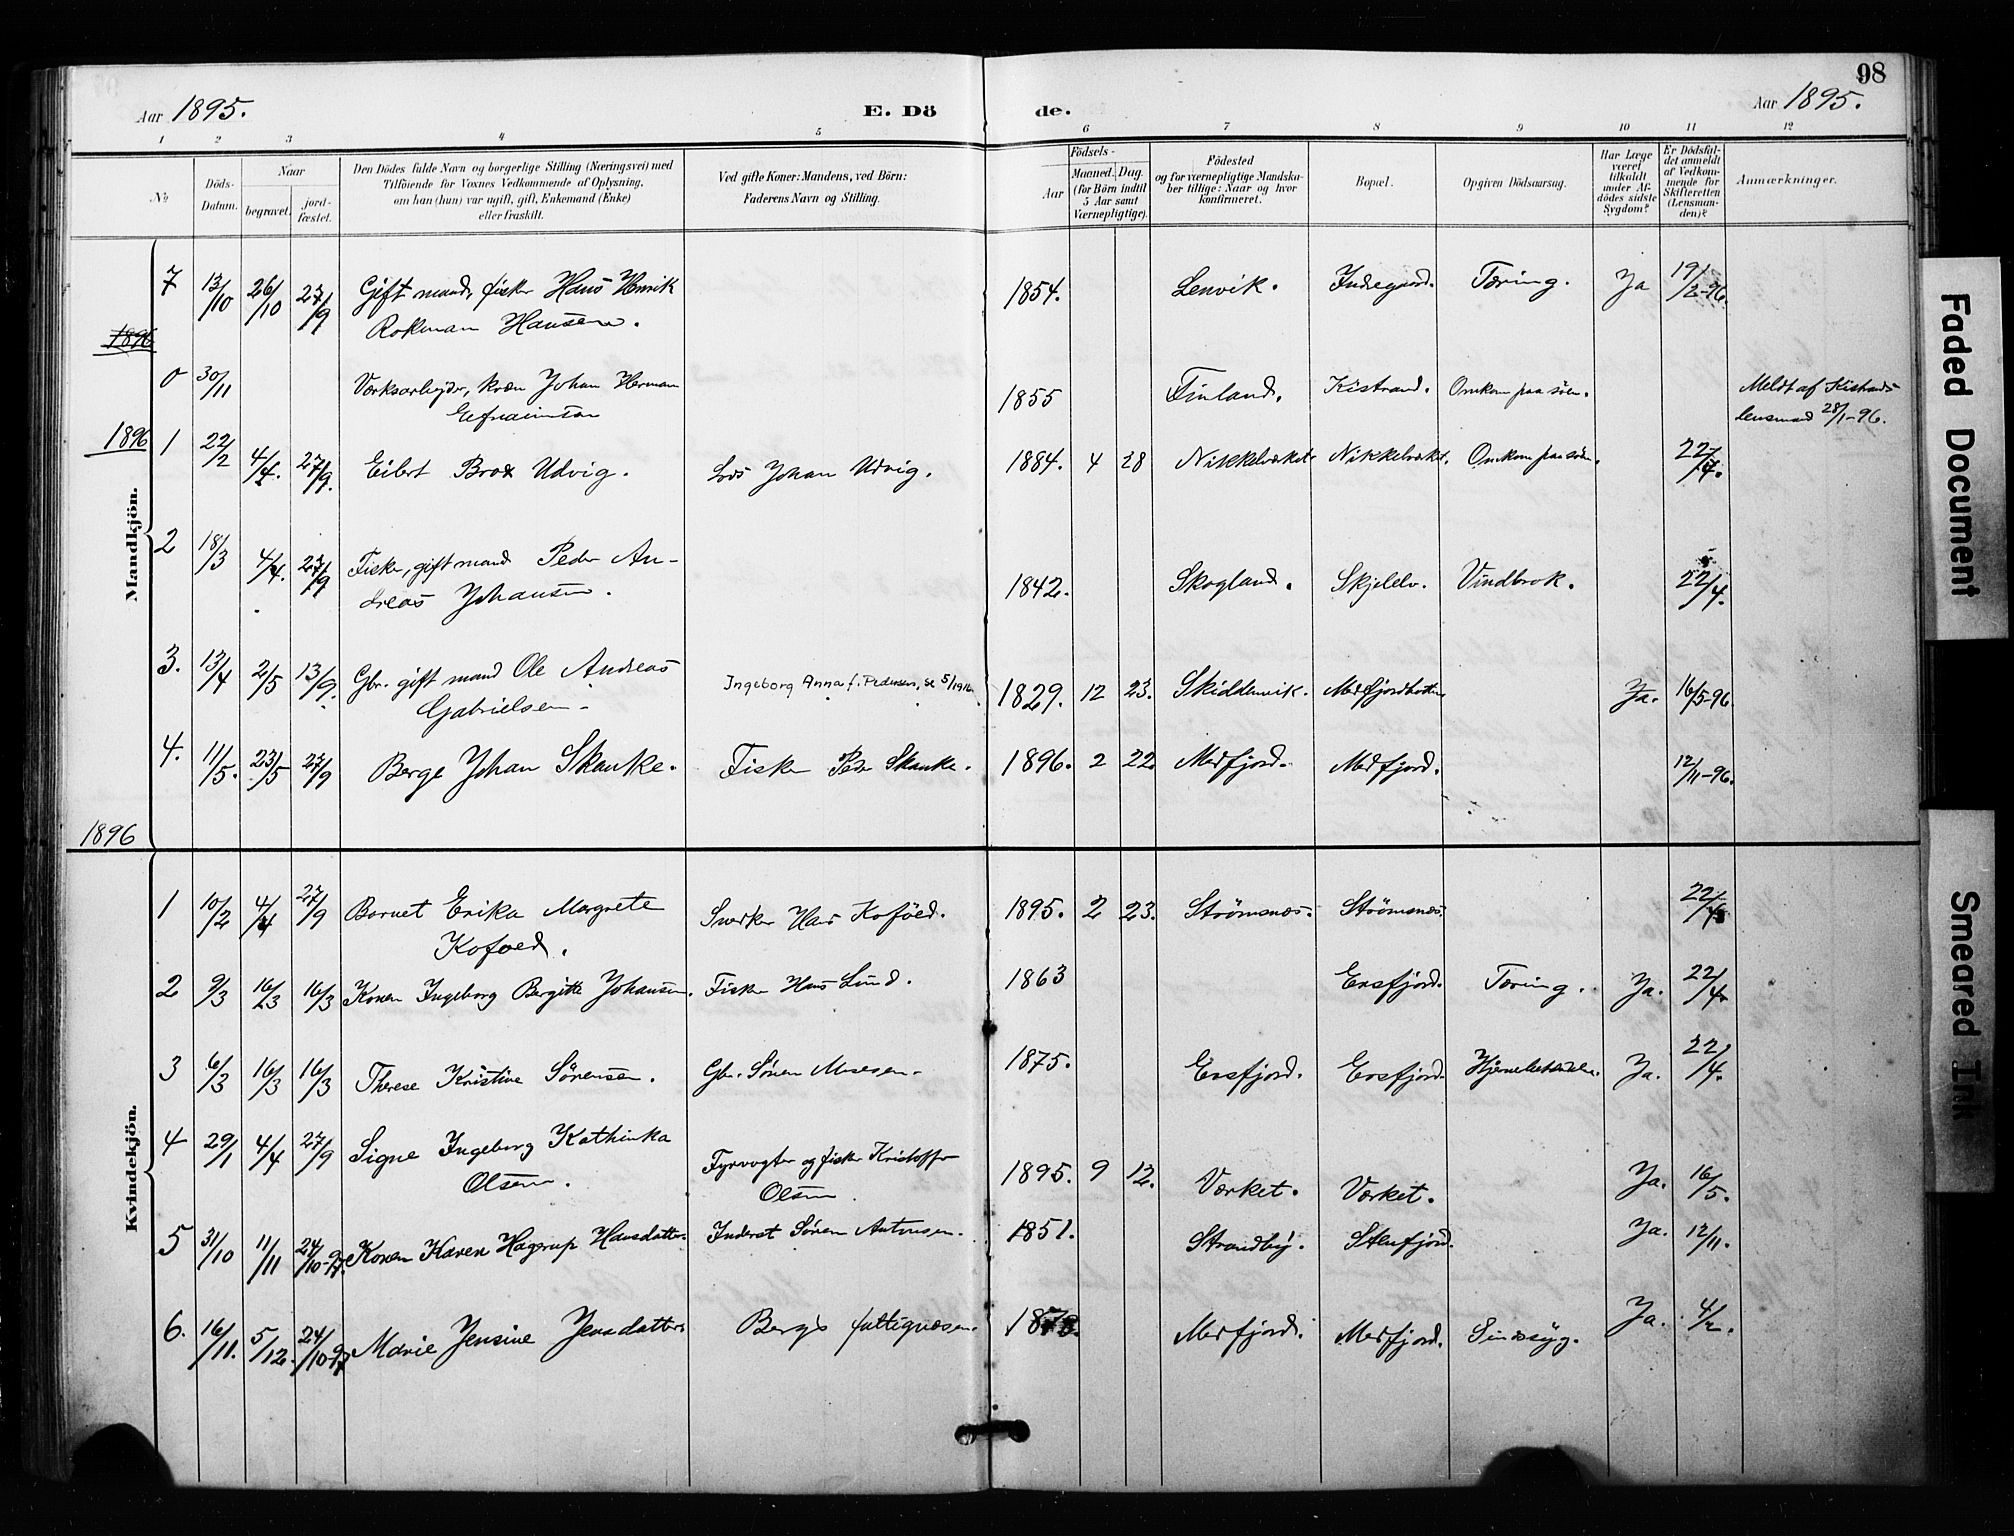 98
Aar 1895. E. Dö de. Aar 1895.
1 2 3 4 5 6 7 8 9 10 11 12
No
Döds-Datum.
Naar
begravet.
jord-fæstet.
Den Dödes fulde Navn og borgerlige Stilling (Næringsvei) med
Tilföiende for Voxnes Vedkommende af Oplysning,
om han (hun) var ugift, gift, Enkemand (Enke)
eller fraskilt.
Ved gifte Koner: Mandens, ved Börn:
Faderens Navn og Stilling.
Födsels-
Aar
Maaned. Dag.
(for Börn indtil
5 Aar samt
Værnepligtige).
Födested
og for værnepligtige Mandska-
ber tillige: Naar og hvor
konfirmeret.
Bopæl.
Opgiven Dödsaarsag.
Har Læge
været
tilkaldt
under Af-
dödes sidste
Sygdom?
Er Dödsfal-
det anmeldt
af Vedkom-
mende for
Skifteretten
(Lensman-
den)?
Anmærkninger.
Mandkjön.
7 13/10 26/10 27/9 Gift mand, fisker Hans Henrik 1854. Lenvik. Indregaard. Tæring. Ja 19/2-96.
Rokman Hansen.
1896
0 30/11 Værksarbejder, kvæn Johan Herman 1855 Finland. Kistrand. Omkom paa söen. Meldt af Kistrands
Lensmand 28/1-96.
1896
1 22/2 4/4. 27/9. Eilert Brox Udvig. Lods Johan Udvig. 1884. 4 28 Nikkelværket. Nikkelværket. Omkom paa söen. 22/4.
2 18/3 4/4. 27/9 Fisker, gift mand Peder An-
dreas Johansen. 1842. Skogland. Skjelelv. Vindbrok. 22/4.
3. 13/4 2/5 13/9. Gbr. gift mand Ole Andreas Ingeborg Anna f. Pedersen, se 5/1916.
Gabrielsen 1829. 12 23. Skiddenvik. Medfjordbotten Ja. 16/5-96.
4. 11/5. 23/5 27/9 Berge Johan Skanke. Fisker Peder Skanke. 1896. 2 22 Medfjord. Medfjord. 12/11-96.
1896
Kvindekjön.
1 10/2 4/4 27/9 Barnet Erika Margrete Snerker Hans Kofoed. 1895. 2 23. Strömsnæs. Strömsnæs. 22/4
Kofoed.
2 9/3 16/3 16/3 Konen Ingeborg Bergitte Johansen. Fisker Hans Lund. 1863 Ersfjord. Tæring. Ja. 22/4.
3 6/3 16/3 16/3 Therese Kristine Sörensen. Gbr. Sören Mosesen. 1875. Ersfjord. Ersfjord. Hjernebetændelse. Ja. 22/4.
4 29/1 4/4 27/9 Signe Ingeborg Kathinka
Olsen. Fyrvogter og fisker Kristoffer
Olsen 1895. 9 12. Værket. Værket. Ja. 16/5.
5 31/10 11/11 24/10-97. Konen Karen Hagerup Hansdatter. Inderst Sören Antonsen. 1851. Strandby. Stenfjord. Ja. 12/11.
6. 16/11. 5/12. 24/10-97 Marie Jensine Jensdatter Bergs fattigvæsen. Medfjord. Medfjord. Sindssyg. Ja. 4/2.
Faded Document
Smeared Ink